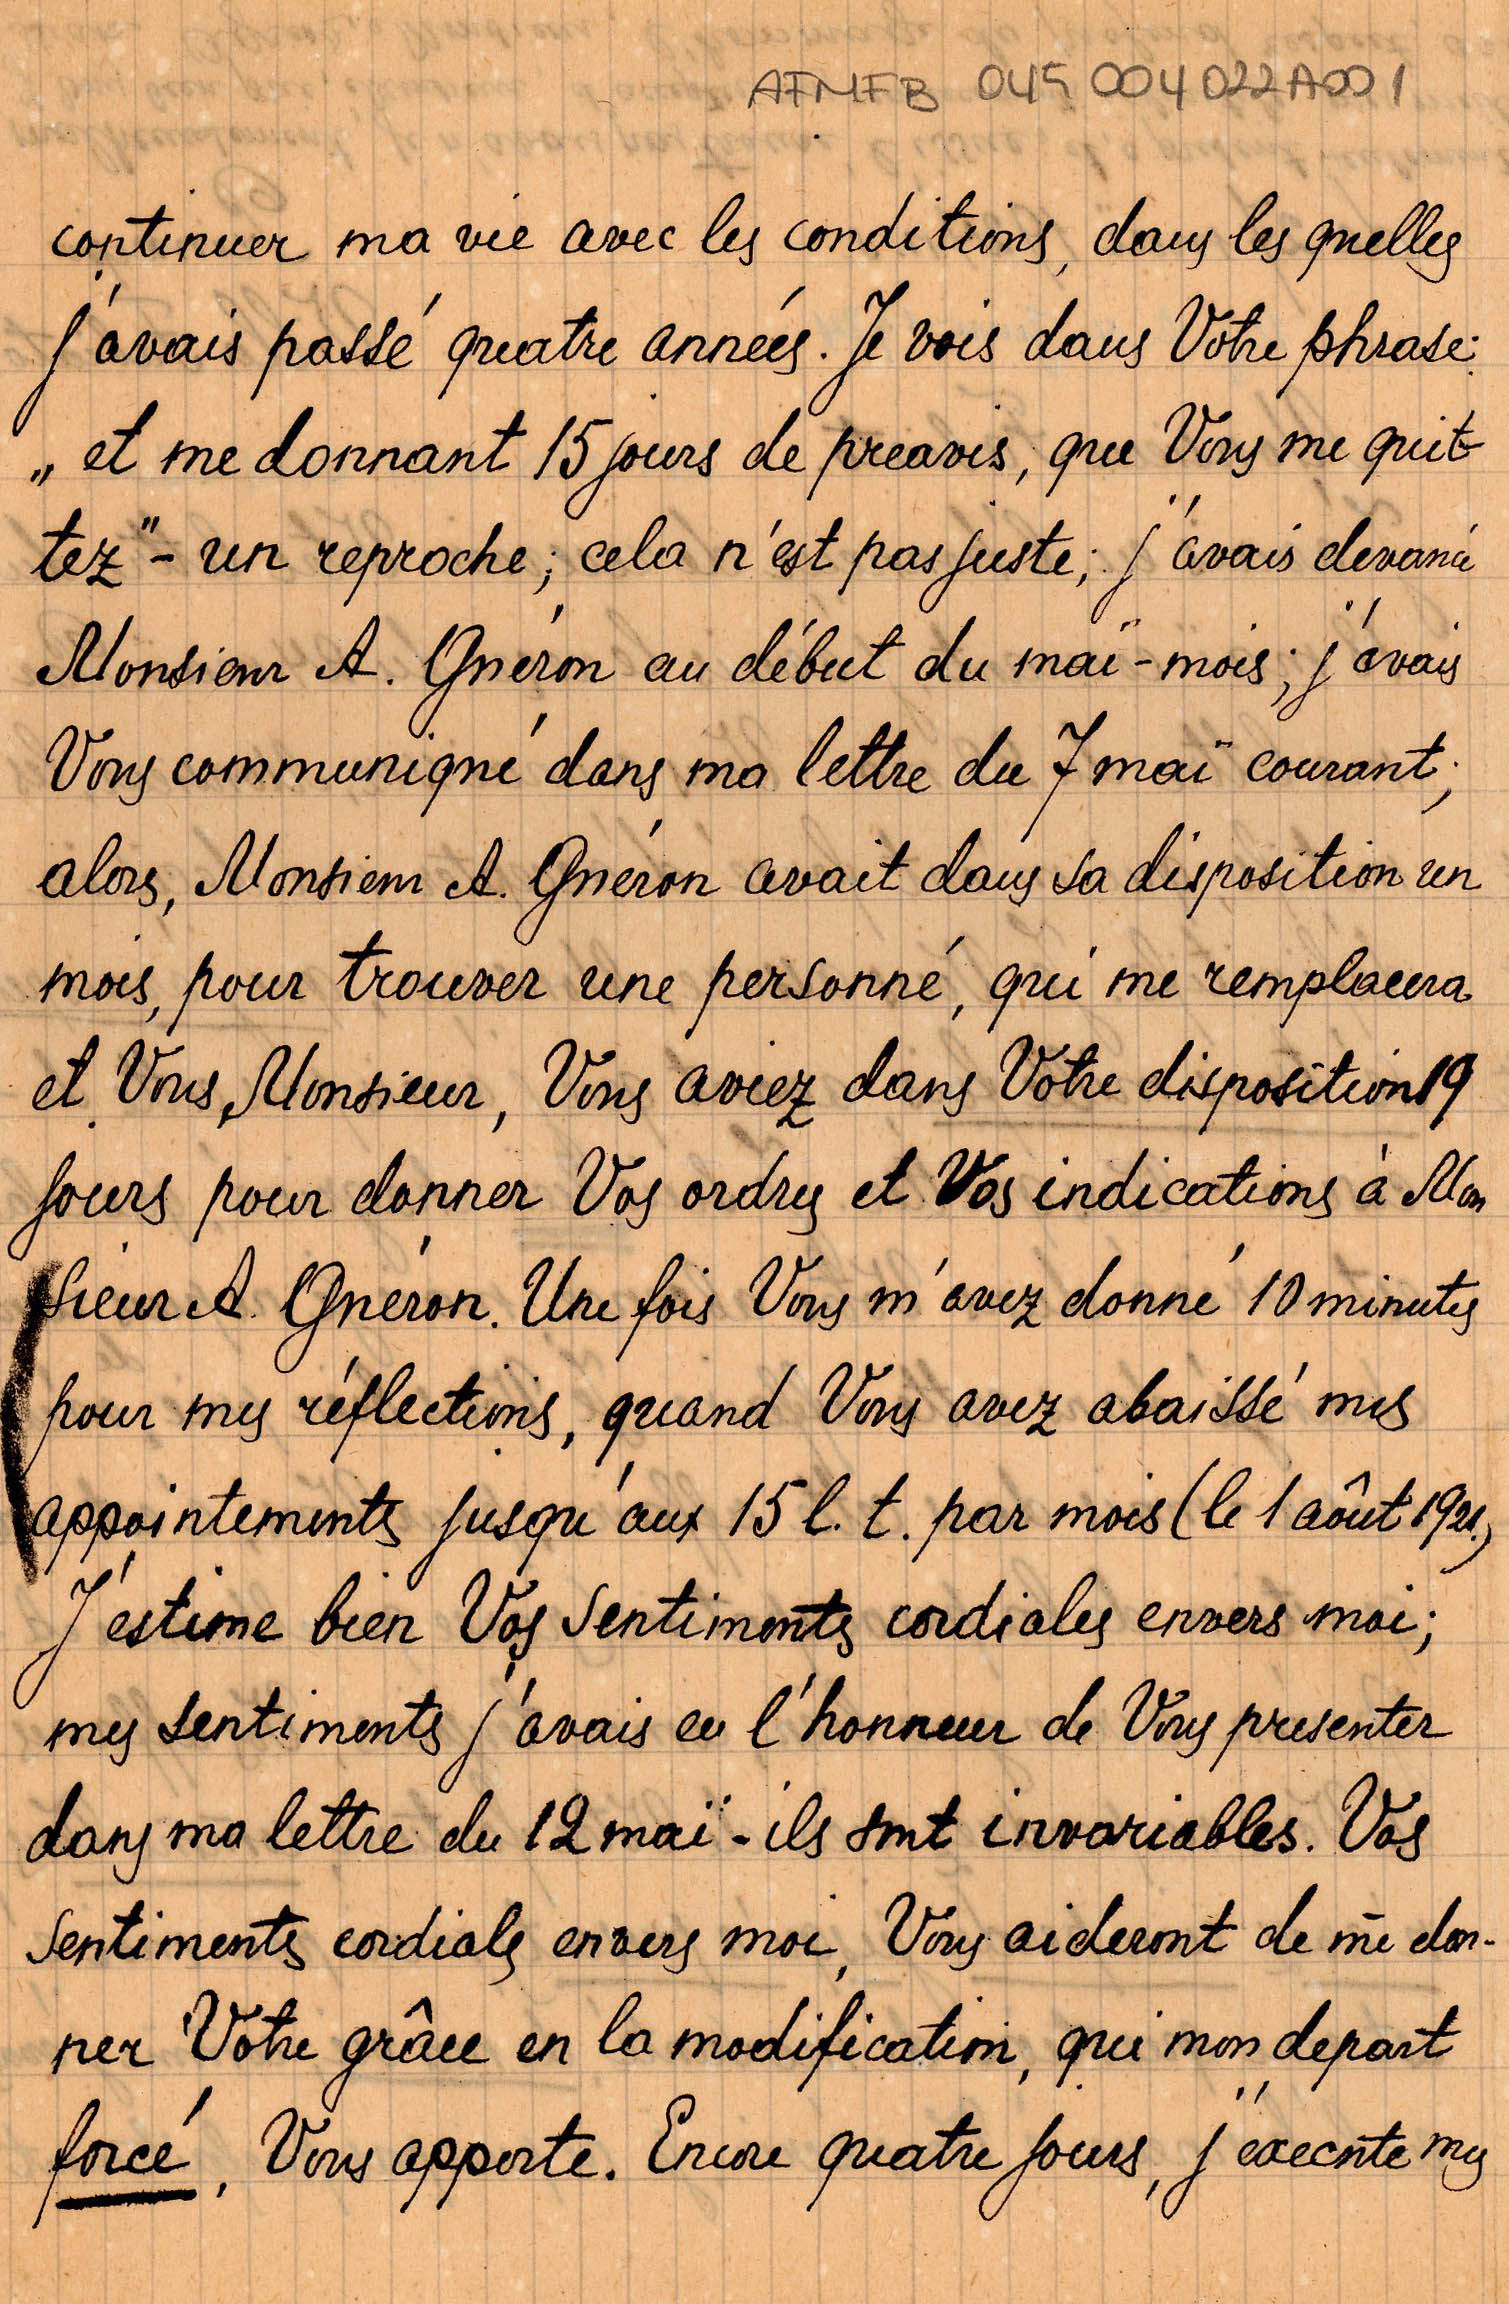 AFMFB 045 004 022A001
continuer ma vie avec les conditions, dans les quelles
j'avais passé quatre années. Je vois dans Votre phrase:
„et me donnant 15 jours de preavis, que Vous me quit-
tez" - un reproche; cela n'est pas juste; j'avais devancé
Monsieur A. Guéron au début du maï-mois; j'avais
Vous communiqué dans ma lettre du 7 maï courant;
alors, Monsieur A. Guéron avait dans sa disposition un
mois, pour trouver une personné, qui me remplacera
et Vous, Monsieur, Vous aviez dans Votre disposition 19
jours pour donner Vos ordres et Vos indications à Mon
sieur A. Guéron. Une fois Vous m'avez donné 10 minutes
pour mes réflections, quand Vous avez abaissé mes
appointements jusqu'aux 15 l. t. par mois (le 1 août 1921.)
J'estime bien Vos sentiments cordiales envers moi;
mes sentiments j'avais eu l'honneur de Vous presenter
dans ma lettre du 12 maï - ils sont invariables. Vos
sentiments cordials envers moi, Vous aideront de me don-
ner Votre grâce en la modification, qui mon depart
forcé, Vous apporte. Encore quatre jours, j'execute mes